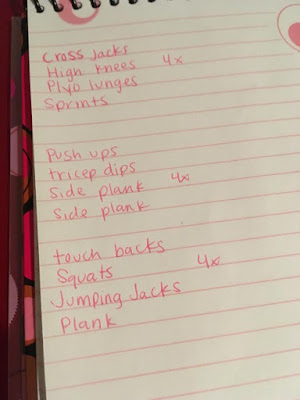 Cross Jacks
High Knees 4x
Plyo lunges
Sprints
Push ups
tricep dips
Side plank 4x
Side plank
touch backs
Squats 4x
Jumping Jacks
Plank